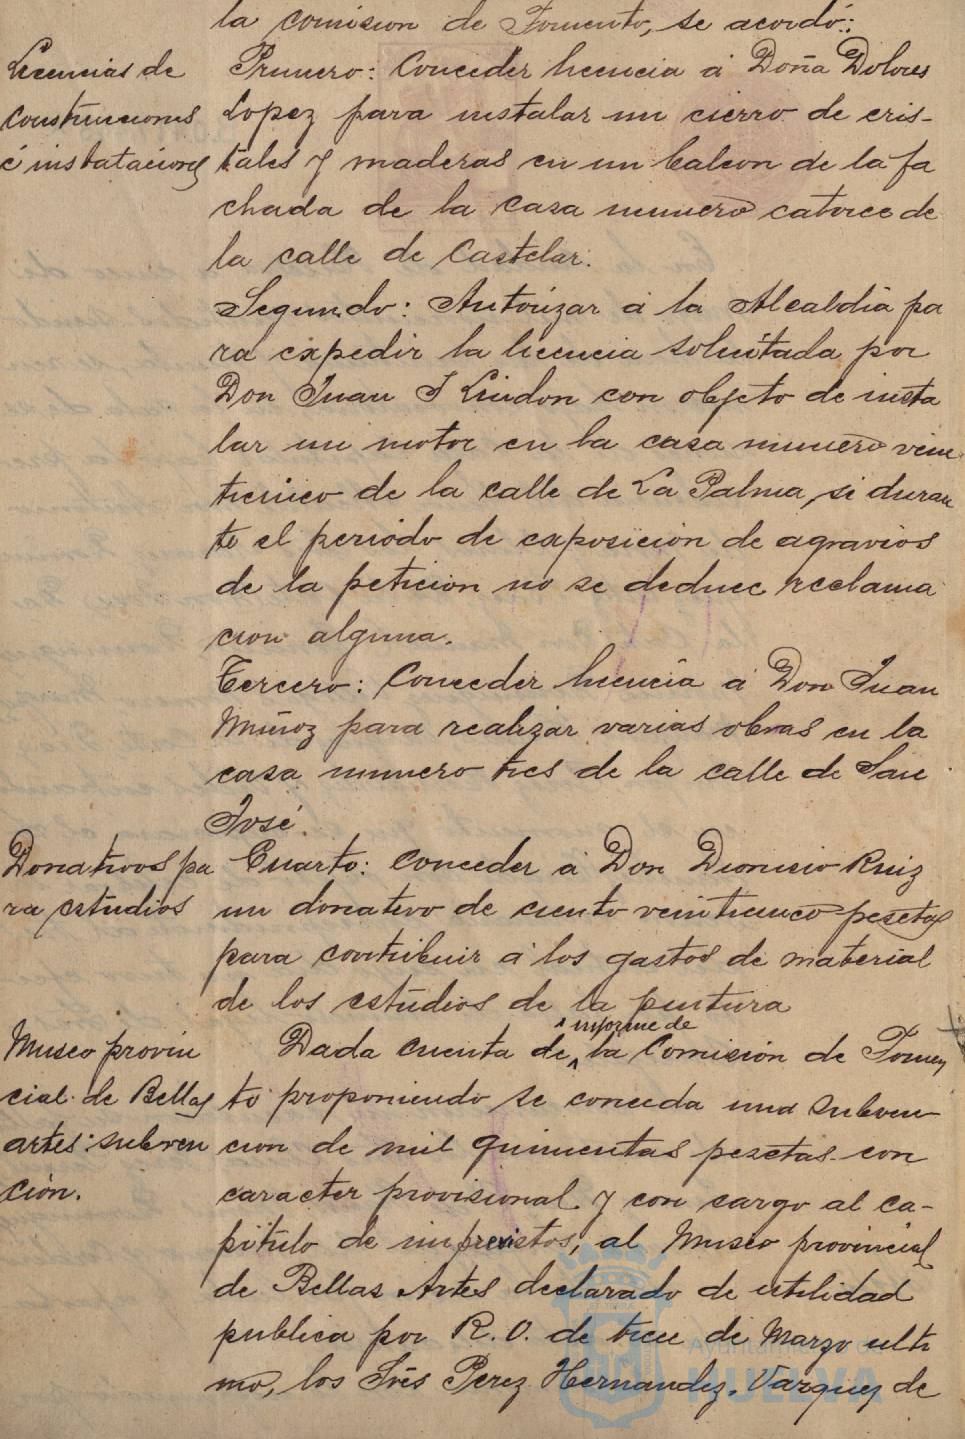 la comision de Fomento, se acordó:
Licencias de
construcciones
é instalaciones
Primero: Conceder licencia á Doña Dolores
Lopez para instalar un cierro de cris-
tales y maderas en un balcon de la fa
chada de la casa numero catorce de
la calle de Castelar.
Segundo: Autorizar á la Alcaldia pa
ra expedir la licencia solicitada por
Don Juan J Lindon con objeto de insta
lar un motor en la casa numero vein
ticinco de la calle de La Palma, si duran
te el periodo de exposicion de agravios
de la peticion no se deduce reclama
cion alguna.
Tercero: Conceder licencia á Don Juan
Muñoz para realizar varias obras en la
casa numero tres de la calle de San
José.
Donativos pa
ra estudios
Cuarto: Conceder á Don Dionisio Ruiz
un donativo de ciento veinticinco pesetas
para contribuir á los gastos de material
de los estudios de la pintura
Museo provin
cial de Bellas
artes: subven
ción.
informe de
Dada cuenta de la Comisión de Fomen
to proponiendo se conceda una subven-
cion de mil quinientas pesetas con
caracter provisional y con cargo al ca-
pitulo de imprevistos, al Museo provincial
de Bellas Artes declarado de utilidad
publica por R. O. de trece de Marzo ulti
mo, los Sres Perez Hernandez, Vazquez de
Ayuntamiento de
HUELVA